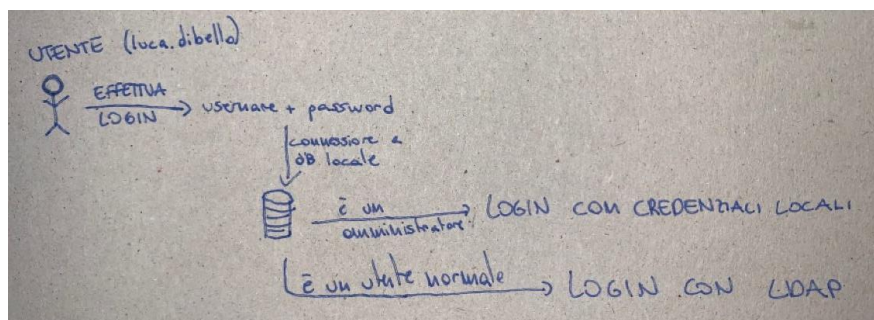 UTENTE (luca.dibello)
EFFETTUA
LOGIN
username + password
connessione a
DB locale
è un
amministratore
LOGIN CON CREDENZIALI LOCALI
è un utente normale
LOGIN CON LDAP